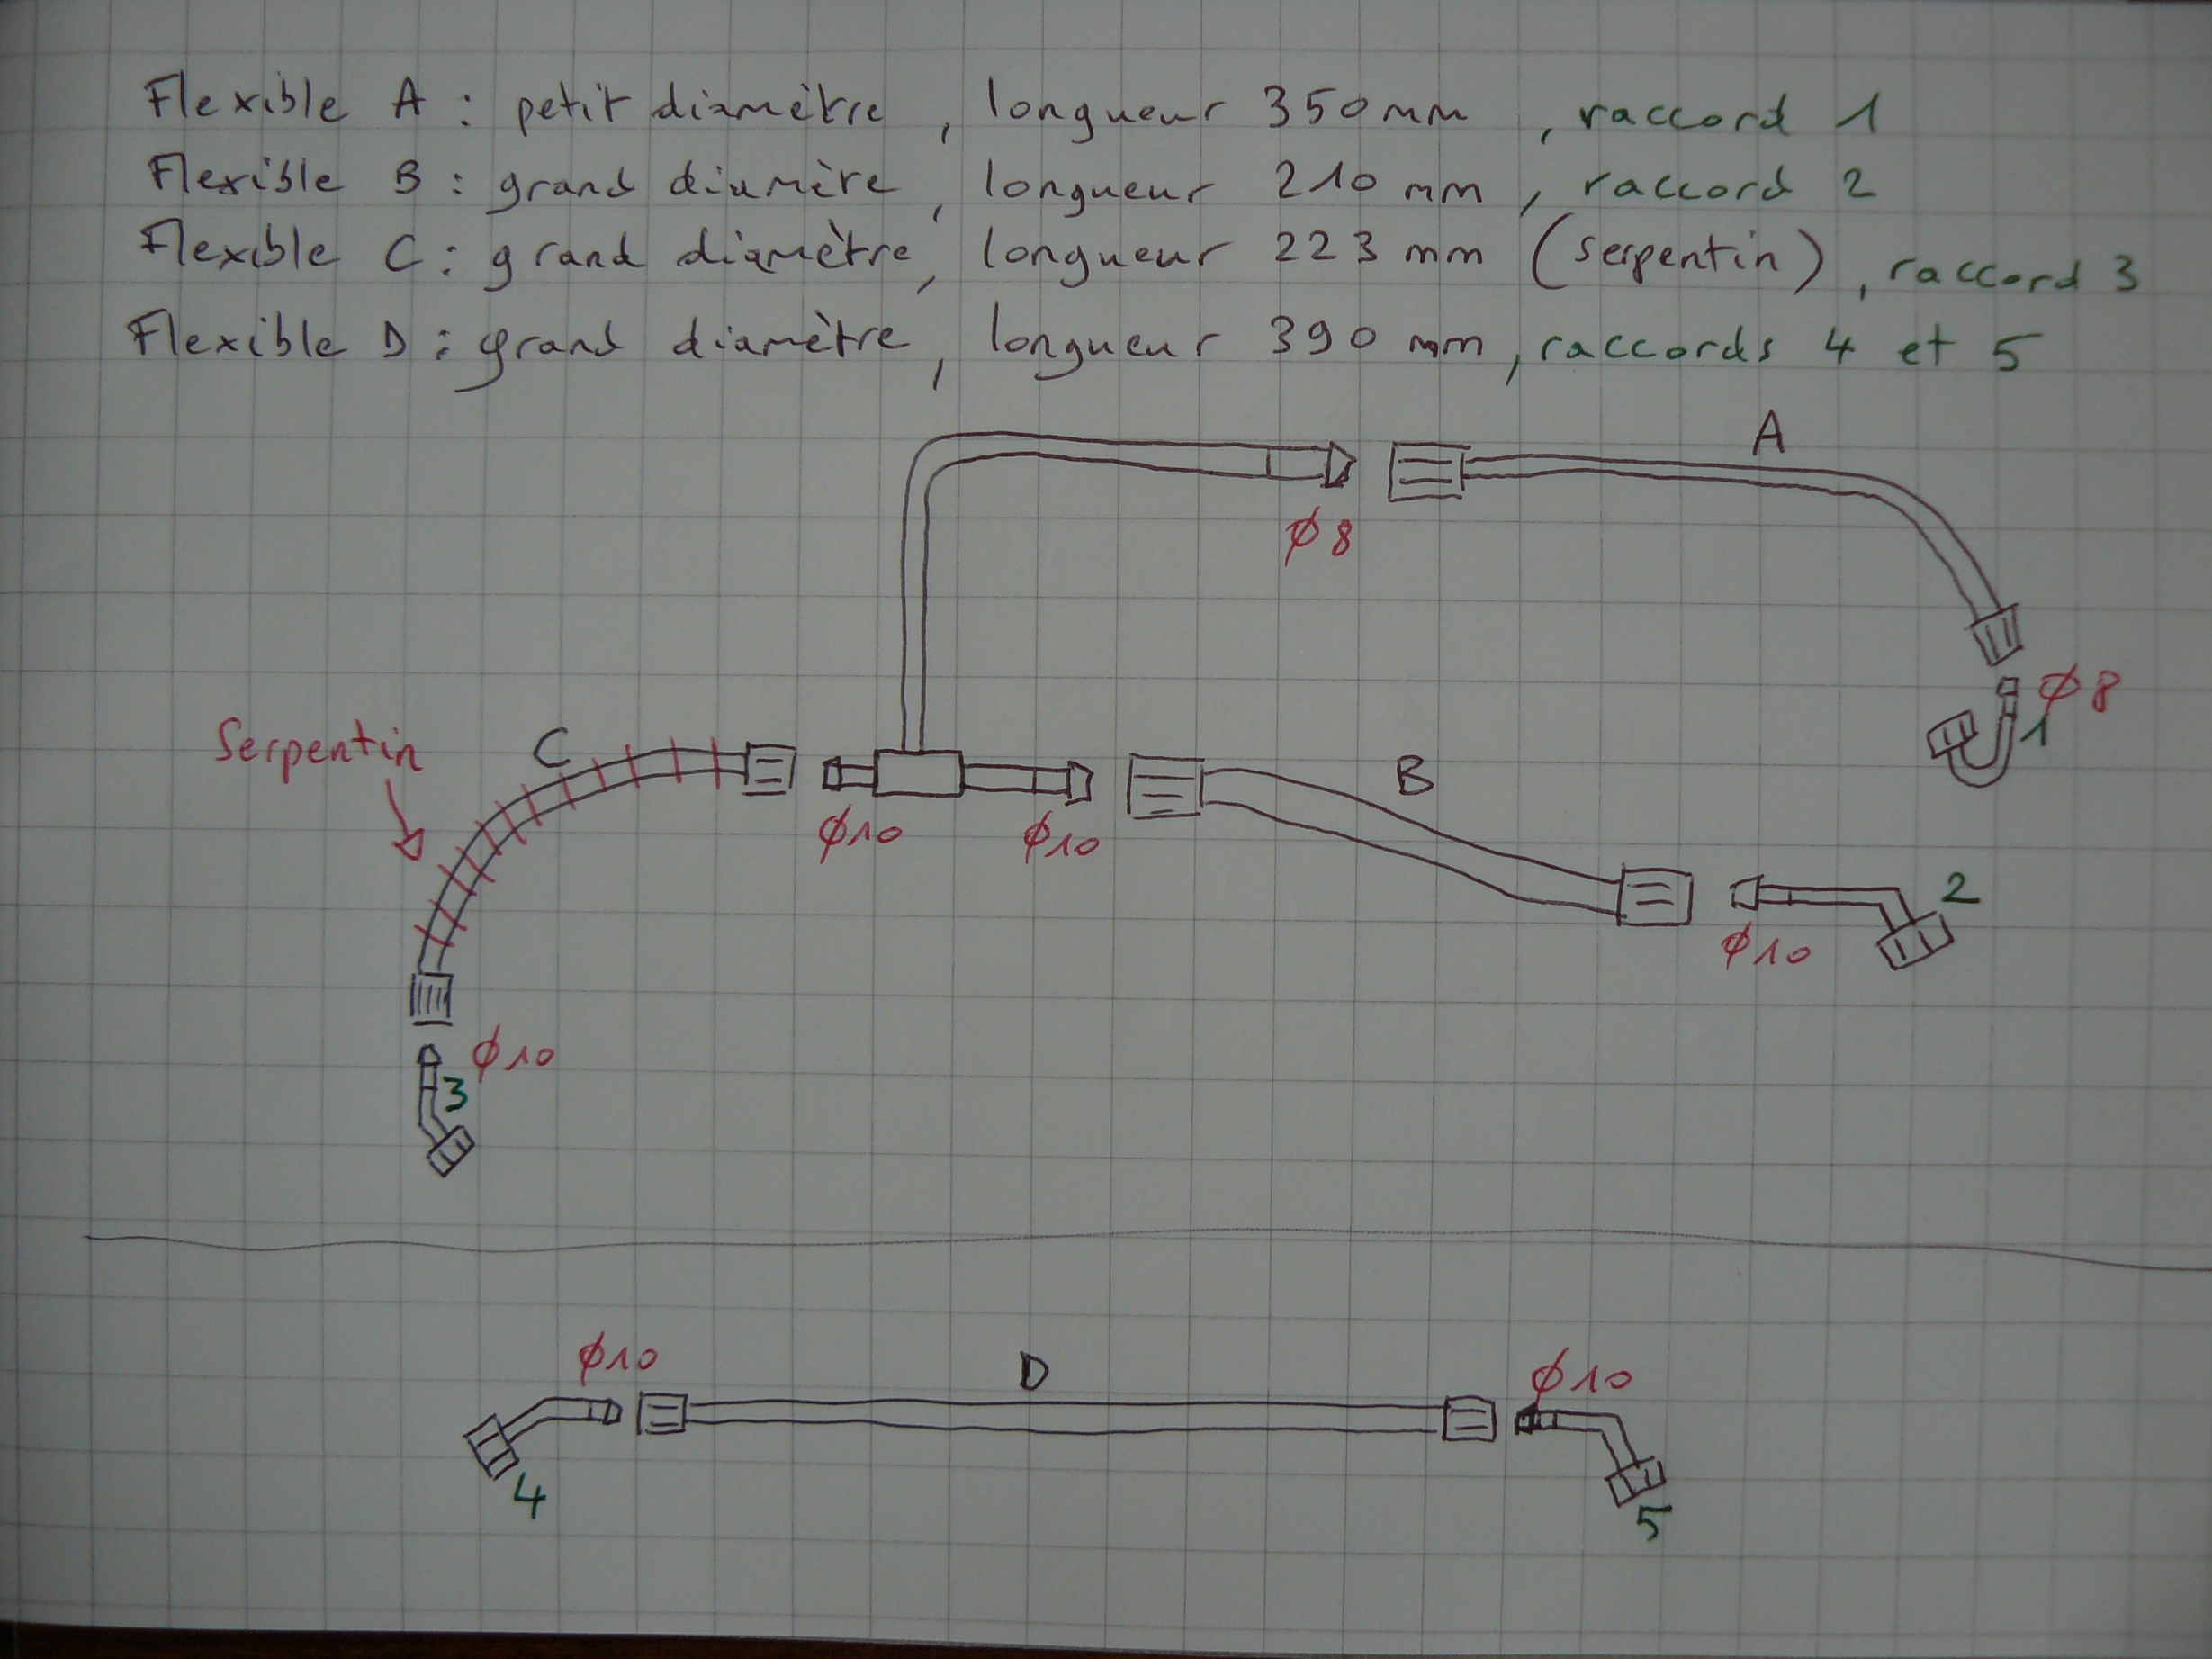 Flexible A : petit diamètre, longueur 350mm, raccord 1
Flexible B : grand diamère, longueur 210 mm, raccord 2
Flexible C : grand diamètre, longueur 223 mm (serpentin), raccord 3
Flexible D : grand diamètre, longueur 390 mm, raccords 4 et 5
A
ø8
ø8
1
Serpentin
C
B
ø10
ø10
2
ø10
ø10
3
ø10
D
ø10
4
5